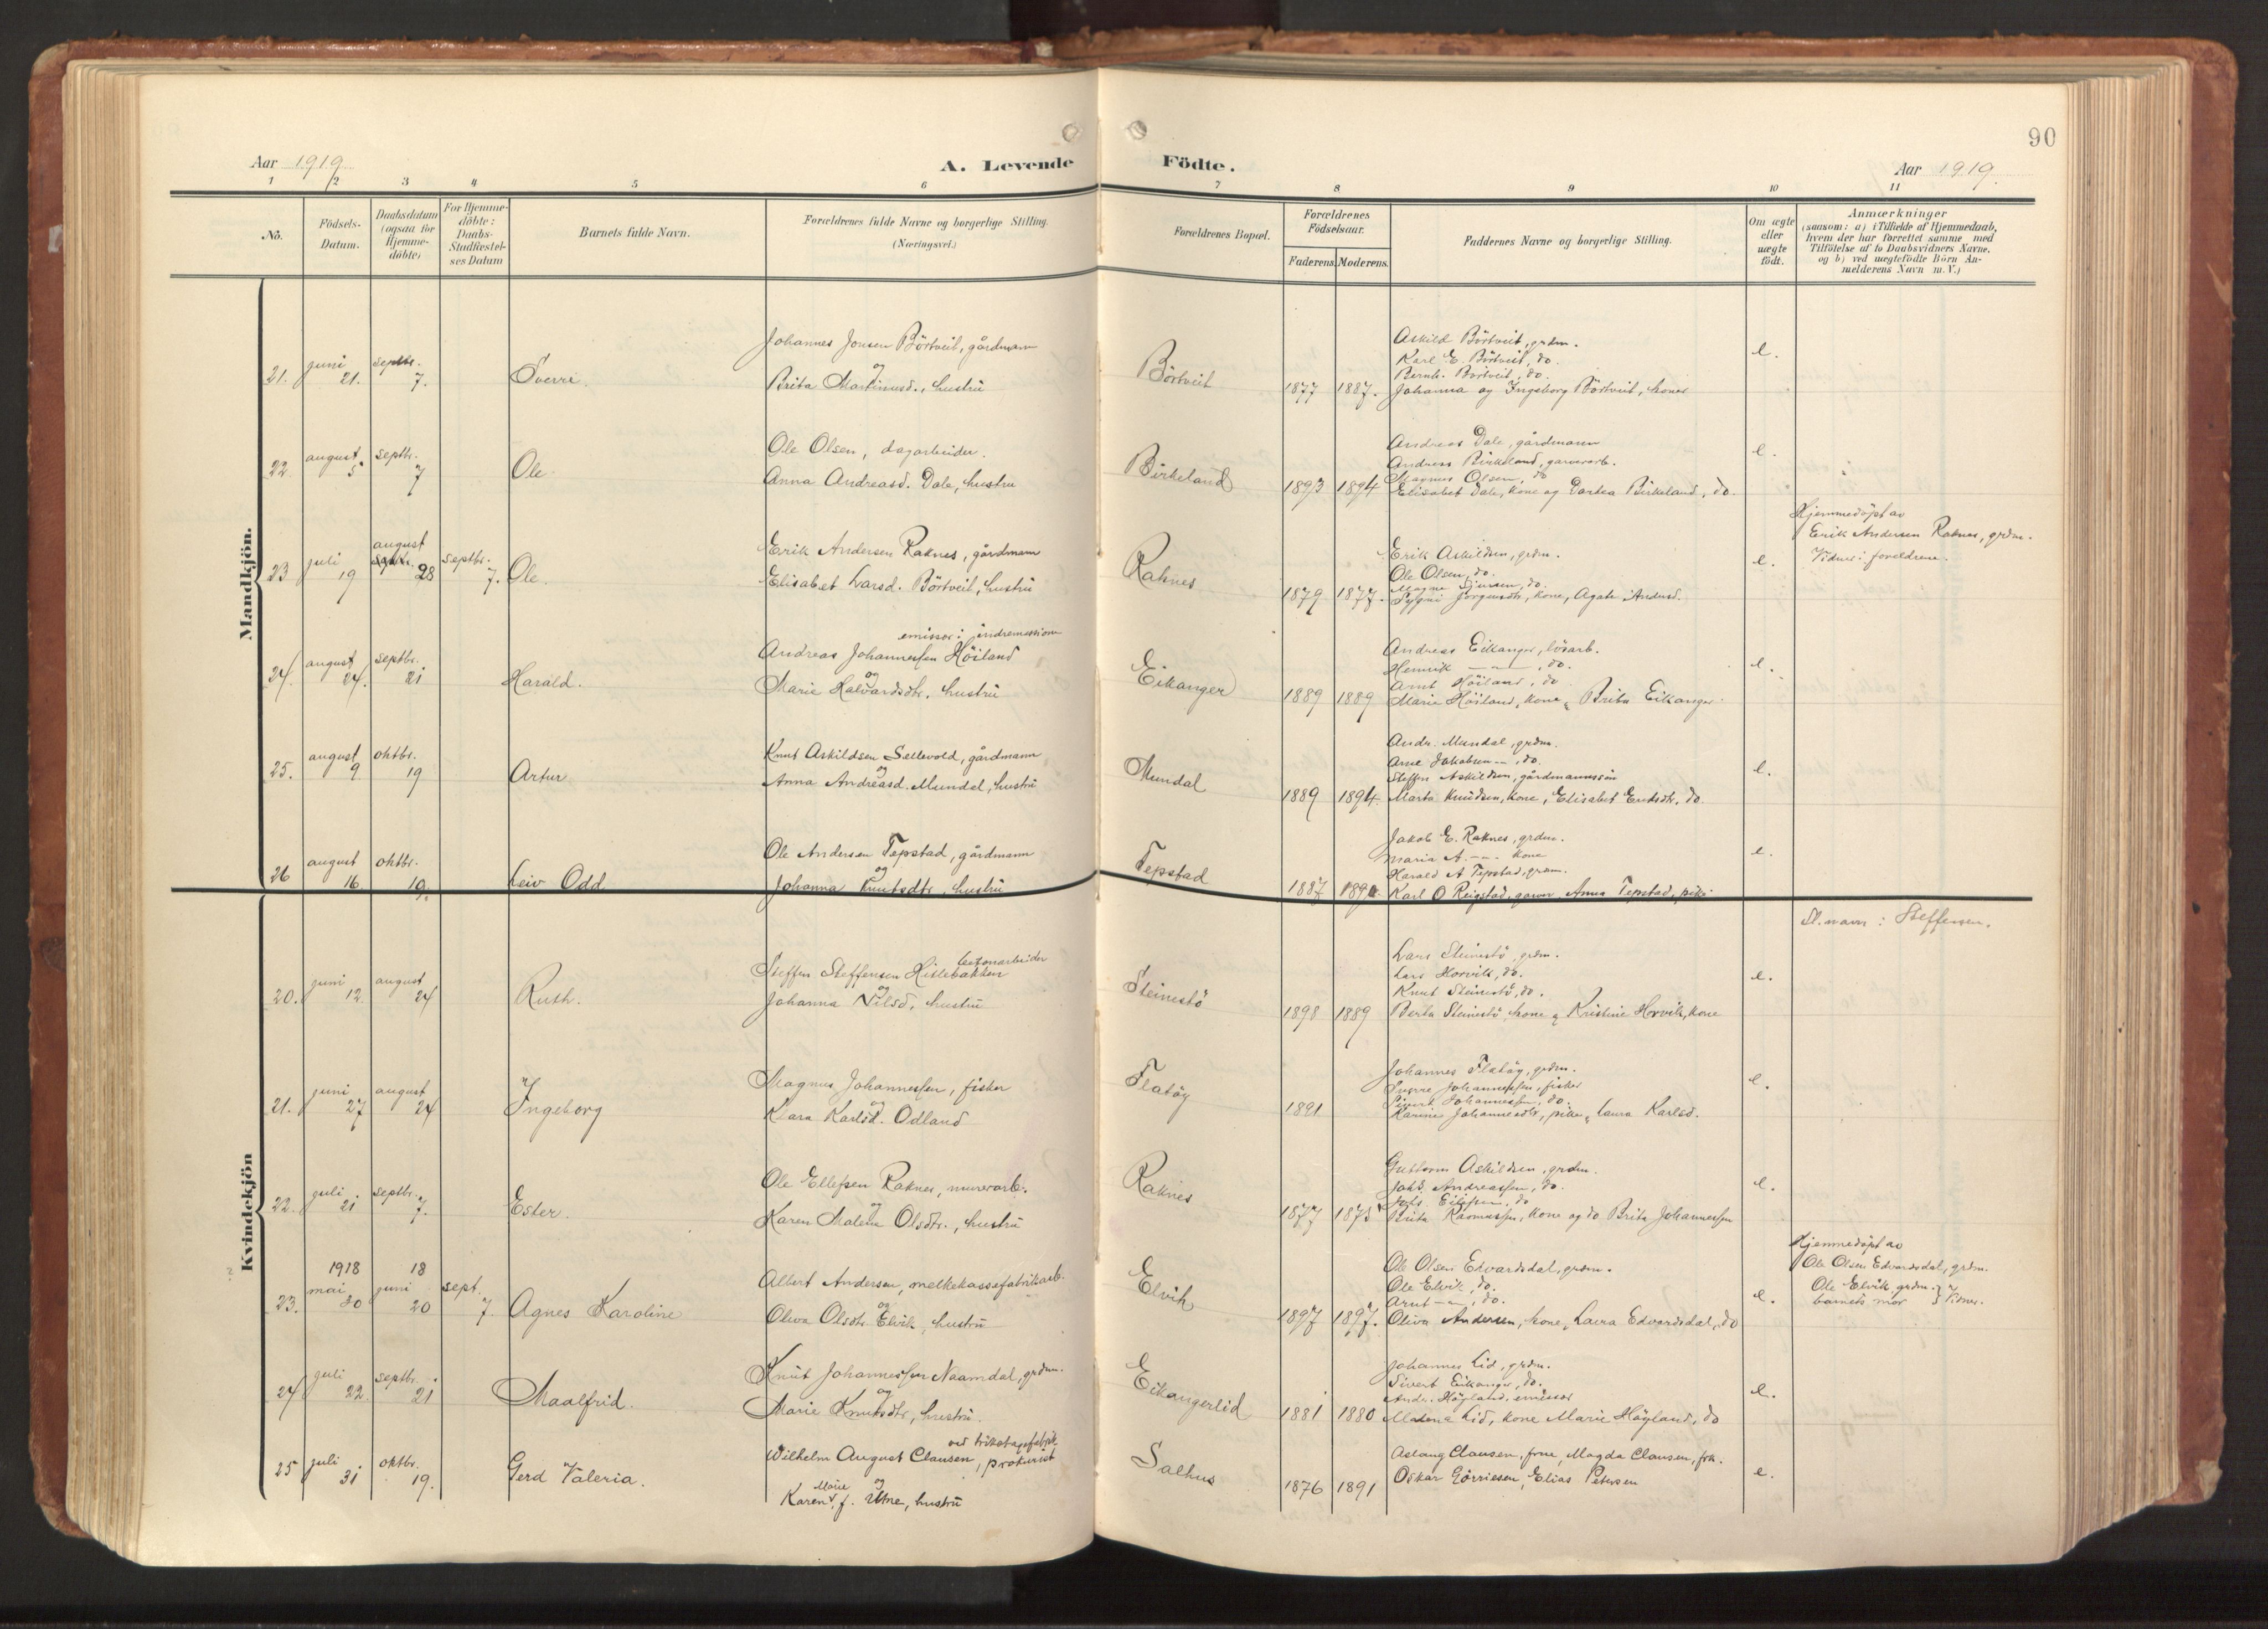 90
Aar 1919.
A. Levende
Födte.
Aar 1919.
1 2 3 4 5 6 7 8 9 10 11
No.
Födsels-
Datum.
Daabsdatum
(ogsaa for
Hjemme-
döbte)
For Hjemme-
döbte:
Daabs-
Stadfæstel-
ses Datum
Barnets fulde Navn.
Forældrenes fulde Navne og borgerlige Stilling.
(Næringsvei.)
Forældrenes Bopæl.
Forældrenes
Födselsaar.
Faderens. Moderens.
Faddernes Navne og borgerlige Stilling.
Om ægte
eller
uægte
födt.
Anmærkninger
(saasom: a) i Tilfælde af Hjemmedaab,
hvem der har forrettet samme med
Tilföielse af to Daabsvidners Navne,
og b) ved uægtefödte Börn An-
melderens Navn m. V.)
Mandkjön.
21. juni 21. septbr. 7. Sverri.
Johannes Jonsen Börtveit, gårdmann
og
Brita Martinusd., hustru
Börtveit
1877 1887.
Askild Börtveit, grdm.
Karl E. Börtveit, do.
Bernh. Börtveit, do.
Johanna og Ingeborg Börtveit, koner
e.
22. august 5 septbr. 7 Ole.
Ole Olsen, dagarbeider.
Anna Andreasd. Dale, hustru
Birkeland
1893 1894
Andreas Dale, gårdmann
Andreas Birkeland, garverarb.
Magnus Olsen, do
Elisabet Dale, kone og Dortea Birkeland, do.
e.
23 juli 19 august 28 septbr. 7. Ole.
Erik Andersen Raknes, gårdmann
Elisabet Larsd. Börtveit, hustru
Raknes
1879 1877.
Erik Askildsen, grdm.
Ole Olsen, do.
Magne Sjursen, do.
Jörgensdtr, kone, Agate Andersd.
e.
Hjemmedöpt av
Erik Andersen Raknes, grdm.
Vidner: foreldrene.
24. august 24. septbr. 21 Harald.
emissær i indremissionen
Andreas Johannessen Höiland
og
Marie Halvardsdtr. hustru
Eikanger
1889 1889
Andreas Eikanger, lösarb.
Henrik —"—, do.
Arnt Höiland, do
Marie Höiland, kone, Brita Eikanger.
e.
25. august 9 oktbr. 19 Artur
Knut Askildsen Sellevold, gårdmann
og
Anna Andreasd. Mundal, hustru
Mundal
1889 1894
Andr. Mundal, grdm.
Arne Jakobsen —"—, do.
Steffen Askildsen, gårdmannssön
Marta Knudsen, kone, Elisabet Endsdtr. do.
e.
26 august 16. oktbr. 19. Leiv Odd
Ole Andersen Tepstad, gårdmann
og
Johanna Knutsdtr, hustru
Tepstad
1887
Jakob E. Raknes, grdm.
Maria A. —"— kone
Harald A Tepstad, grdm.
Karl O Reigstad, Anna Tepstad, pike
e.
Kvindekjön
20. juni 12. august 24 Ruth.
betonarbeider
Steffen Steffensen Hillebakken
og
Johanna Nilsd. hustru
Steinestö
1898 1889
Lars Steinestö, grdm.
Lars Horvik, do.
Knut Steinestö, do.
Berta Steinestö kone, Kristine Horvik, kone
e.
Sl.navn: Steffensen.
21. juni 27 august 24 Ingeborg
Magnus Johannessen, fisker
og
Klara Karlsd. Odland
Flatöy
1891
Johannes Flatöy, grdm.
Sverre Johannessen, fisker
Sivert Johannessen, do.
Karine Johannesdtr, pike, Laura Karlsd.
e.
22. juli 21 septbr. 7. Ester.
Ole Ellefsen Raknes, murerarb.
og
Karen Malene Olsdtr., hustru
Raknes
1877 1875
Guttorm Askildsen, grdm.
Johs. Andreassen, do.
Johs. Ellefsen, do
Brita Rasmussen, kone og do Brita Johannessen
e.
23. 1918 mai 30 18 juni 20 sept. 7. Agnes Karoline
Albert Andersen, melkekassefabrikarb.
og
Oliva Olsdtr Elvik, hustru
Elvik
1897 1897.
Ole Olsen Edvardsdal, grdm.
Ole Elvik, do.
Arnt —"—, do.
Oliva Andersen, kone, Laura Edvardsdal, do
e.
Hjemmedöpt av
Ole Olsen Edvardsdal, grdm.
Ole Elvik grdm. }
barnets mor } Vidner.
24 juli 22. septbr. 21 Maalfrid.
Knut Johannessen Naamdal, grdm.
og
Marie Knutsdtr, hustru.
Eikangerlid
1881 1880
Johannes Lid, grdm.
Sivert Eikanger, do.
Andr. Höyland, emissær
Malena Lid, kone Marie Höyland, do
e.
25 juli 31 oktbr. 19. Gerd Valeria.
ved trikotagefabrik
Wilhelm August Clausen, prokurist
og
Karen Marie f. Utne, hustru
Salhus
1876 1891
Aslaug Clausen, frue, Magda Clausen, frk.
Oskar Görriesen, Elias Petersen
e.